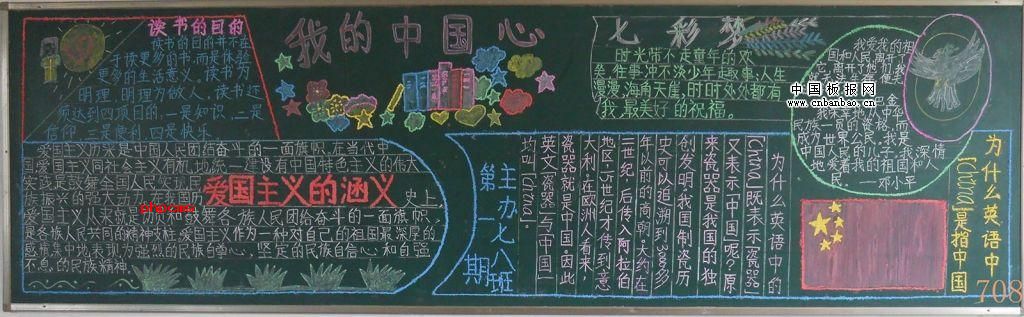 读书的目的
读书的目的并不在
于读更多的书,而是体验
更多的生活意义,读书为
明理,明理为做人,读书还
须达到四项目的,一是知识,二是
信仰,三是便利,四是快乐
我的中国心
七彩梦
时光带不走童年的欢
矣,往事冲不淡少年趣事,人生
漫漫,海角天涯,时时处处都有
我最美好的祝福。
中国板报网
www.cnbanbao.cn
爱国主义历来是中国人民团结奋斗的一面旗帜,在当代中
国,爱国主义同社会主义有机地统一,建设有中国特色主义的伟大
实践是鼓舞全国人民实现民
族振兴的巨大动力
爱国主义的涵义
史上
爱国主义从来就是
舞各族人民团结奋斗的一面旗帜,
是各族人民共同的精神支柱,爱国主义作为一种对自己的祖国最深厚的
感情,集中地表现为强烈的民族自尊心,坚定的民族自信心和自强
不息的民族精神。
主办七八班
第一期
为什么英语中的
「China」既表示瓷器」
又表示中国呢?原
来瓷器是我国的独
创发明,我国制瓷历
史可以追溯到3000多
年以前的商朝。大约在
二世纪后传入阿拉伯
地区,15世纪才传到意
大利。在欧洲人看来,
瓷器就是中国,因此
英文瓷器与中国一
均叫China。
为什么英语中
「China」是指中国
——邓小平
708